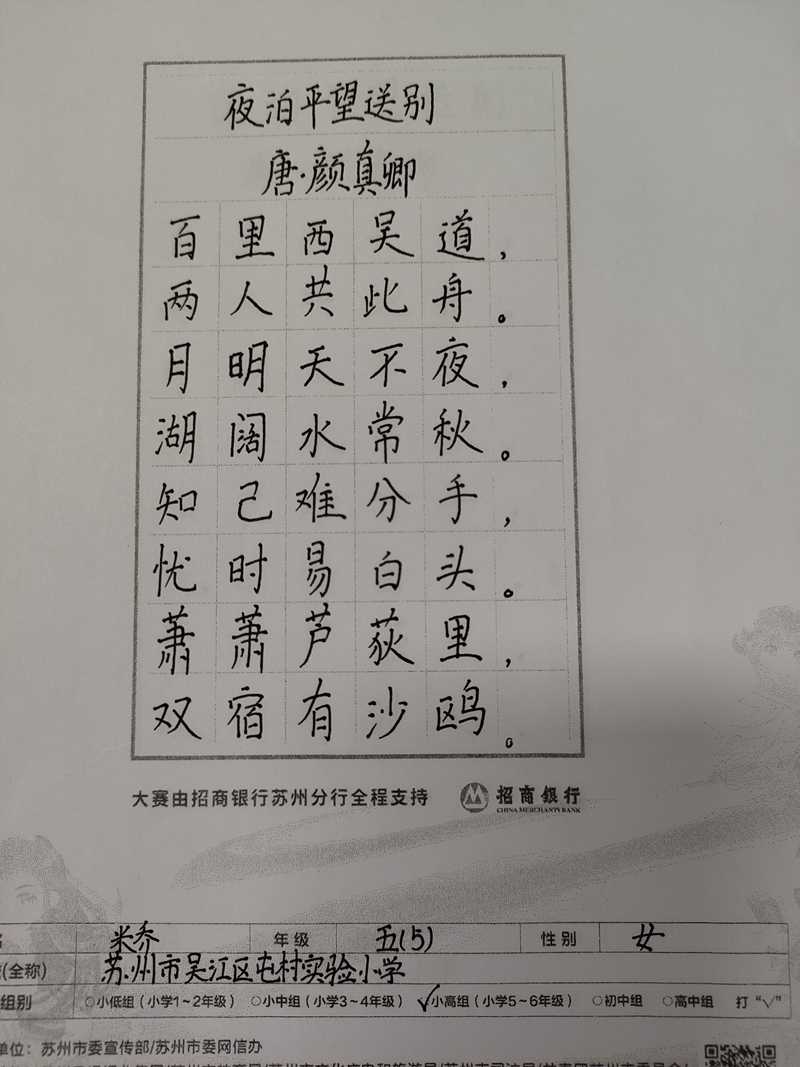 夜泊平望送别
唐·颜真卿
百里西吴道，
两人共此舟。
月明天不夜，
湖阔水常秋。
知己难分手，
忧时易白头。
萧萧芦荻里，
双宿有沙鸥。
大赛由招商银行苏州分行全程支持 招商银行
CHINA MERCHANTS BANK
米乔 年级 五(5) 性别 女
(全称) 苏州市吴江区屯村实验小学
组别 ○小低组（小学1~2年级） ○小中组（小学3~4年级） ✓小高组（小学5~6年级） ○初中组 ○高中组 打“√”
单位：苏州市委宣传部/苏州市委网信办